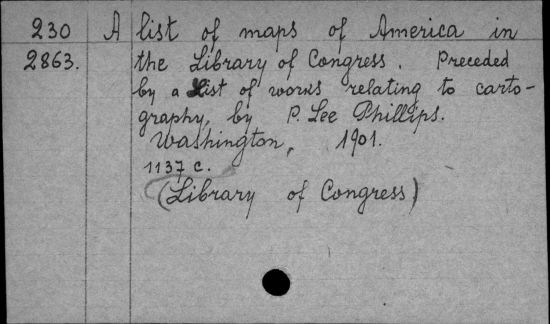 230 A list of maps of America in
2863. the Library of Congress. Preceded
by a List of works relating to carto-
graphy, by P. Lee Phillips.
Washington, 1901.
1137 c.
(Library of Congress)